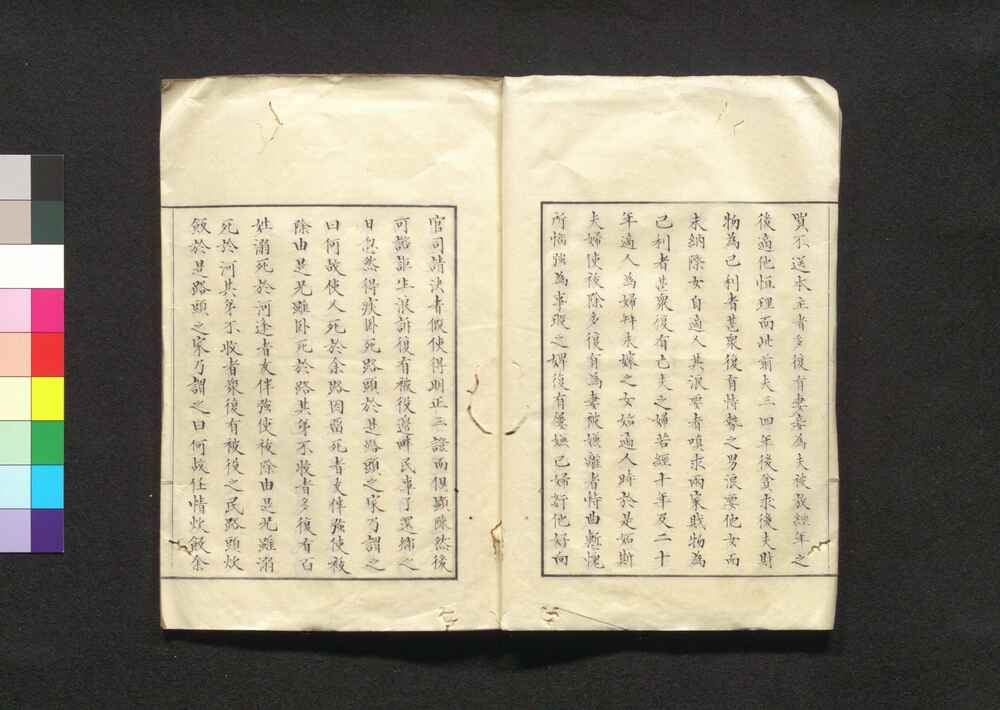 實不送本主者多復有妻妾為夫被放經年之
後適他恒理而此前夫三四年後貪求後夫財
物為己利者甚衆復有恃勢之男浪要他女而
未納際女自適人其浪要者嗔求兩家財物為
己利者甚衆復有亡夫之婦若經十年及二十
年適人為婦并未嫁之女始適人時於是妬斯
夫婦使祓除多復有為妻被嫌離者特由慙愧
所惱強為事瑕之婢復有屢嫌己婦姧他好向
官司請決者假使得明正三證而俱顯陳然後
可諮詎生浪訴復有被役邊畔民事了還鄉之
日忽然得疾卧死路頭於是路頭之家乃謂之
曰何故使人死於余路因留死者友伴強使祓
除由是兄雖卧死於路其弟不收者多復有百
姓溺死於河逢者友伴強使祓除由是兄雖溺
死於河其弟不收者衆復有被役之民路頭炊
飯於是路頭之家乃謂之曰何故任情炊飯余